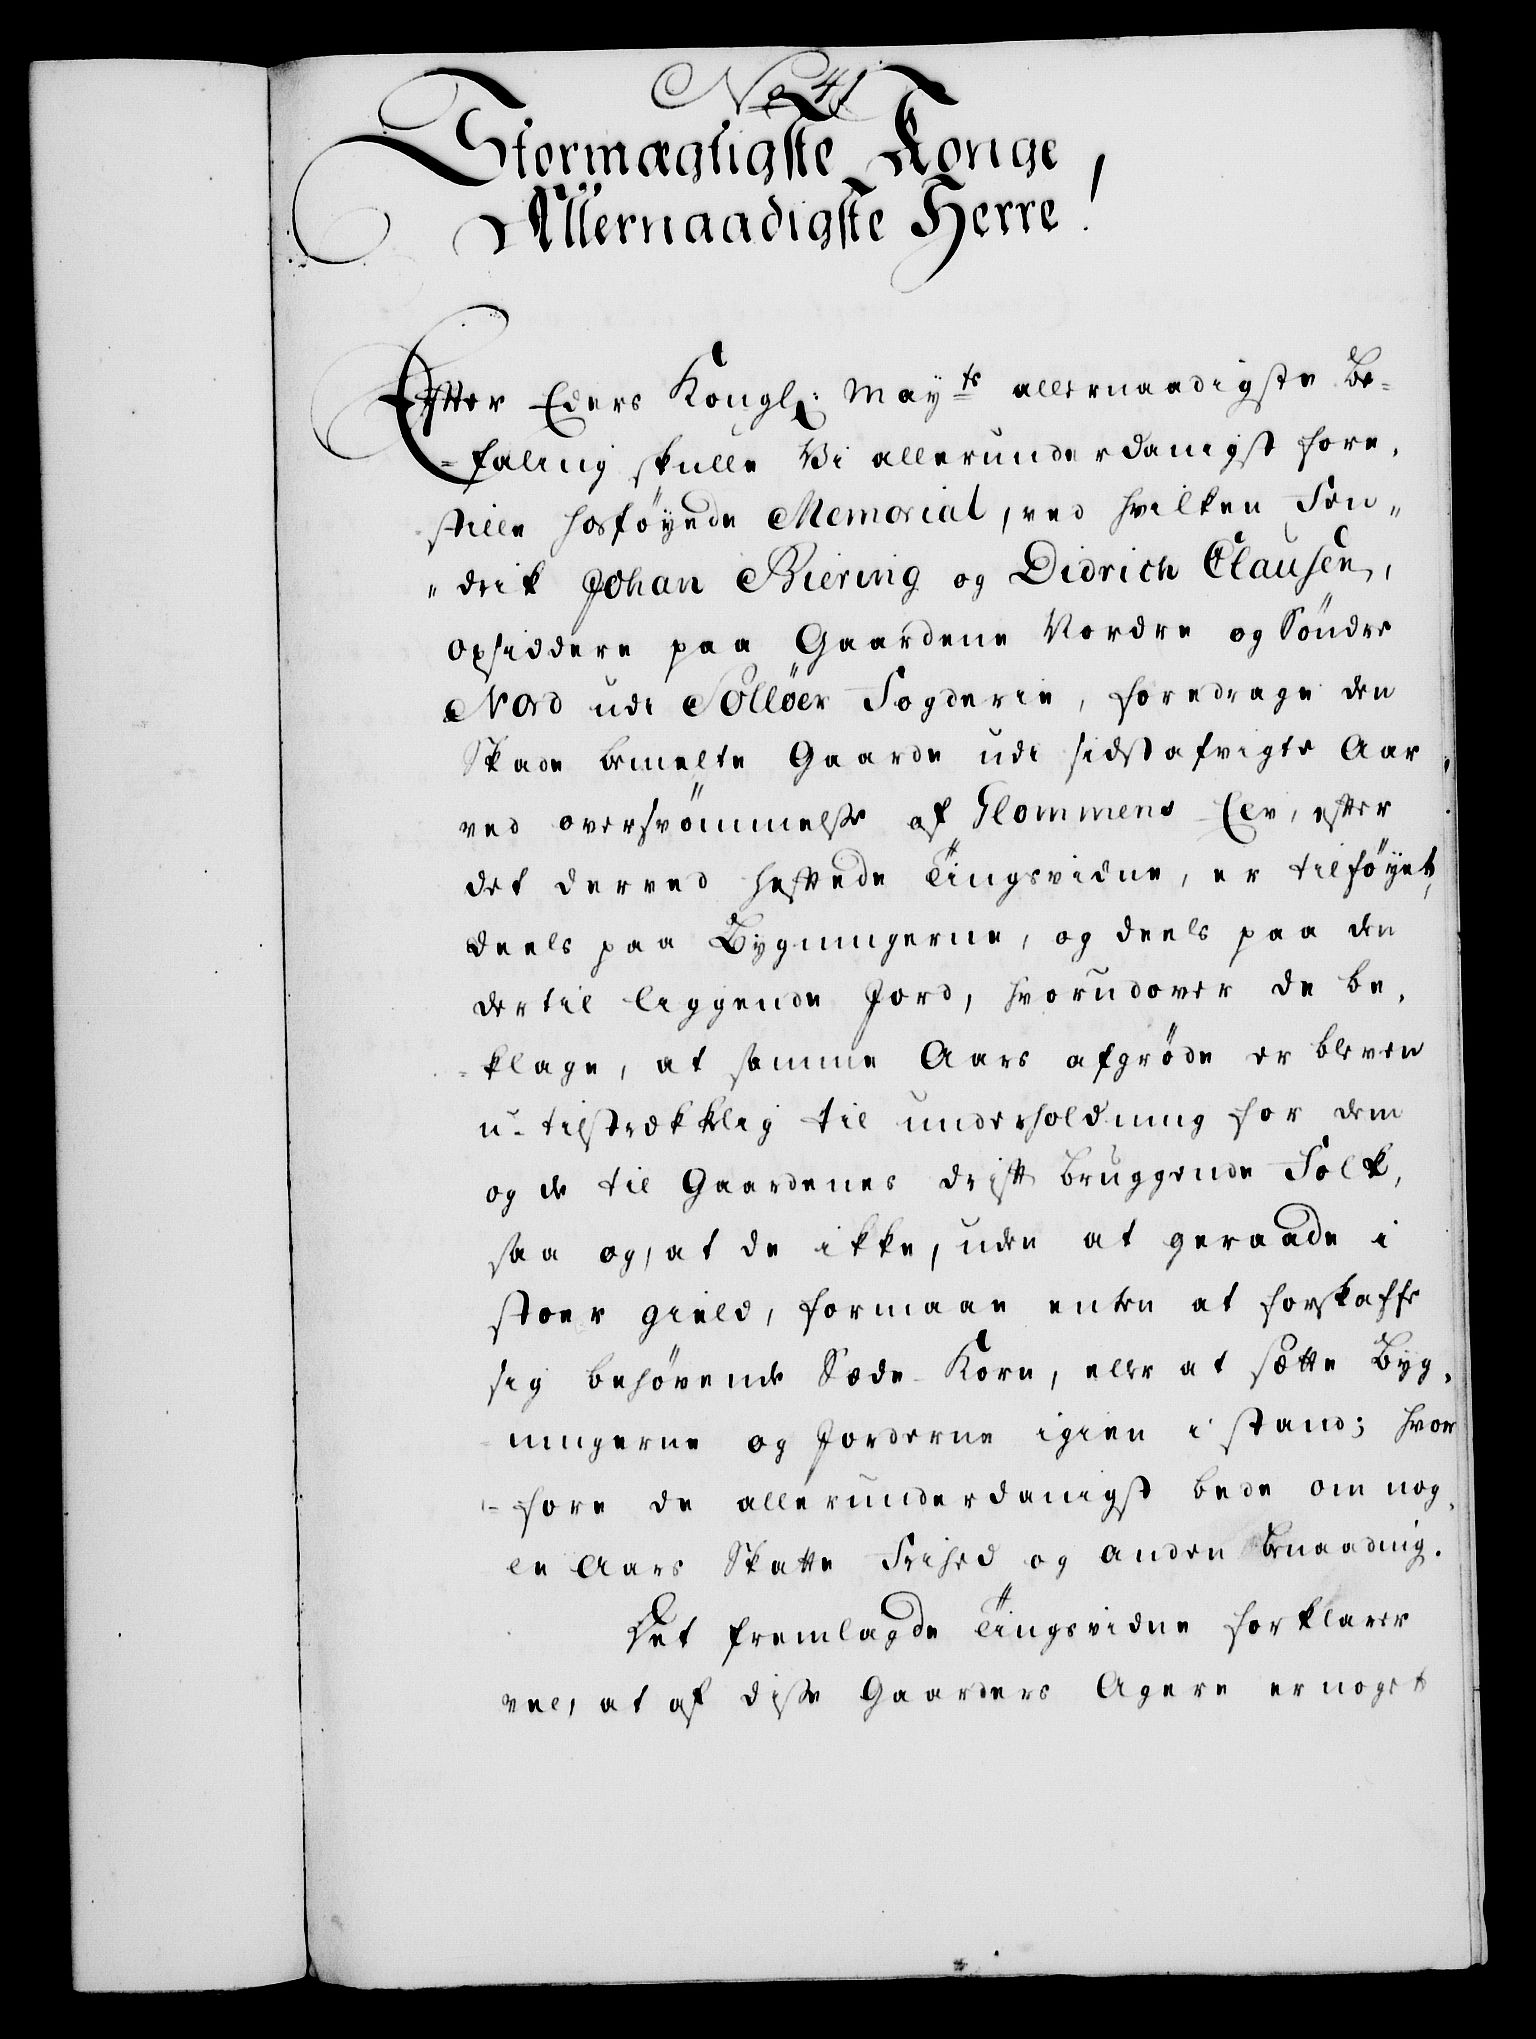 No 41
Stormægtigste Konge,
Allernaadigste Herre!
Efter Eders Kongl: May<sup>ts</sup> allernaadigste Be-
-faling skulle Vi allerunderdanigst fore-
stille hosføyede Memorial, ved hvilken Fen-
"drik Johan Biering og Didrich Clausen,
Opsiddere paa Gaardene Nordre og Søndre
Nord udi Sollöer Fogderie, foredrage den
Skade bemelte Gaarde udi sidstafvigte Aar
ved oversvömmelse af Glommens Elv, efter
det derved heftede Tingsvidne, er tilføyet,
deels paa Bygningerne, og deels paa den
dertil liggende Jord, hvorudover de be-
-klage, at samme Aars afgrøde er bleven
u-tilstrækkelig til underholdning for dem
og de til Gaardenes drift bruggende Folk,
saa og, at de ikke, uden at geraade i
stoer gield, formaae enten at forskaffe
sig behøvende Sæde-Korn, eller at sætte Byg-
ningerne og Jorderne igien i stand; hvor
-fore de allerunderdanigst bede om nog-
le Aars Skatte Frihed og anden benaadnig.
Det fremlagde Tingsvidne forklarer
vel, at af disse Gaarders Agere er noget